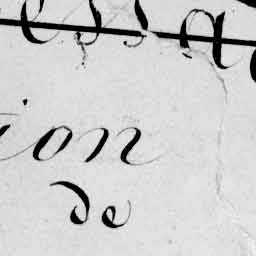 essa
ion
de